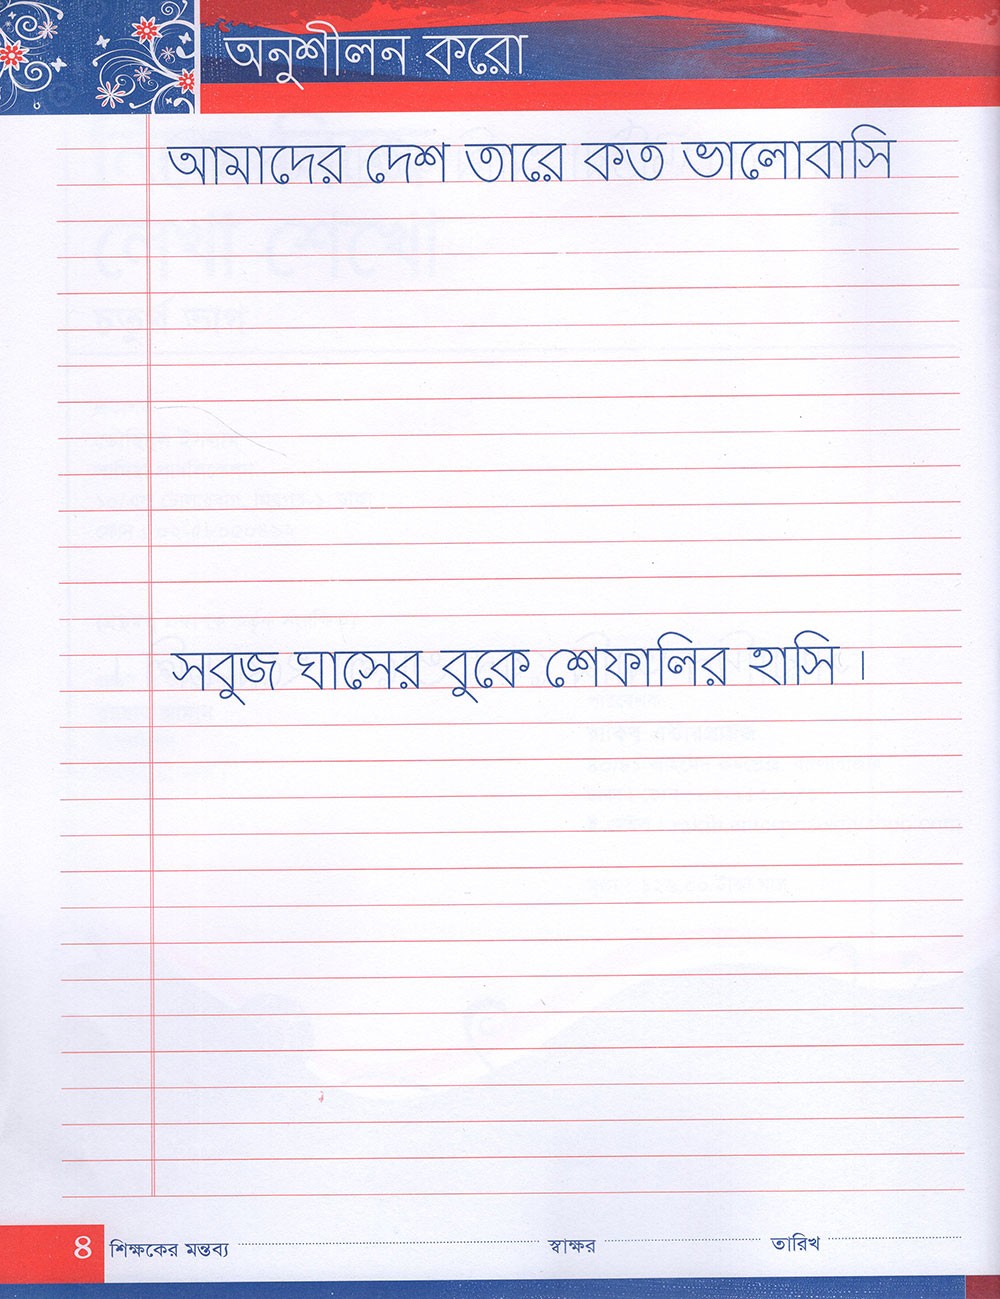 অনুশীলন করো
আমাদের দেশ তারে কত ভালোবাসি
সবুজ ঘাসের বুকে শেফালির হাসি ।
৪ শিক্ষকের মন্তব্য স্বাক্ষর তারিখ